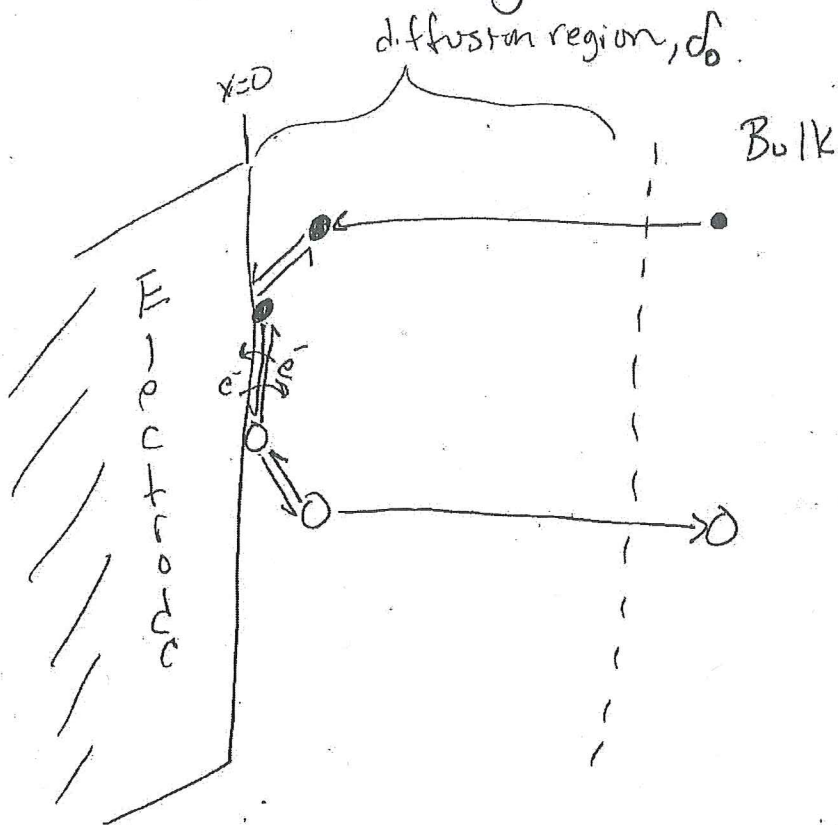 diffusion region, δ₀.
x=0
Bulk
Electrode
e⁻
e⁻